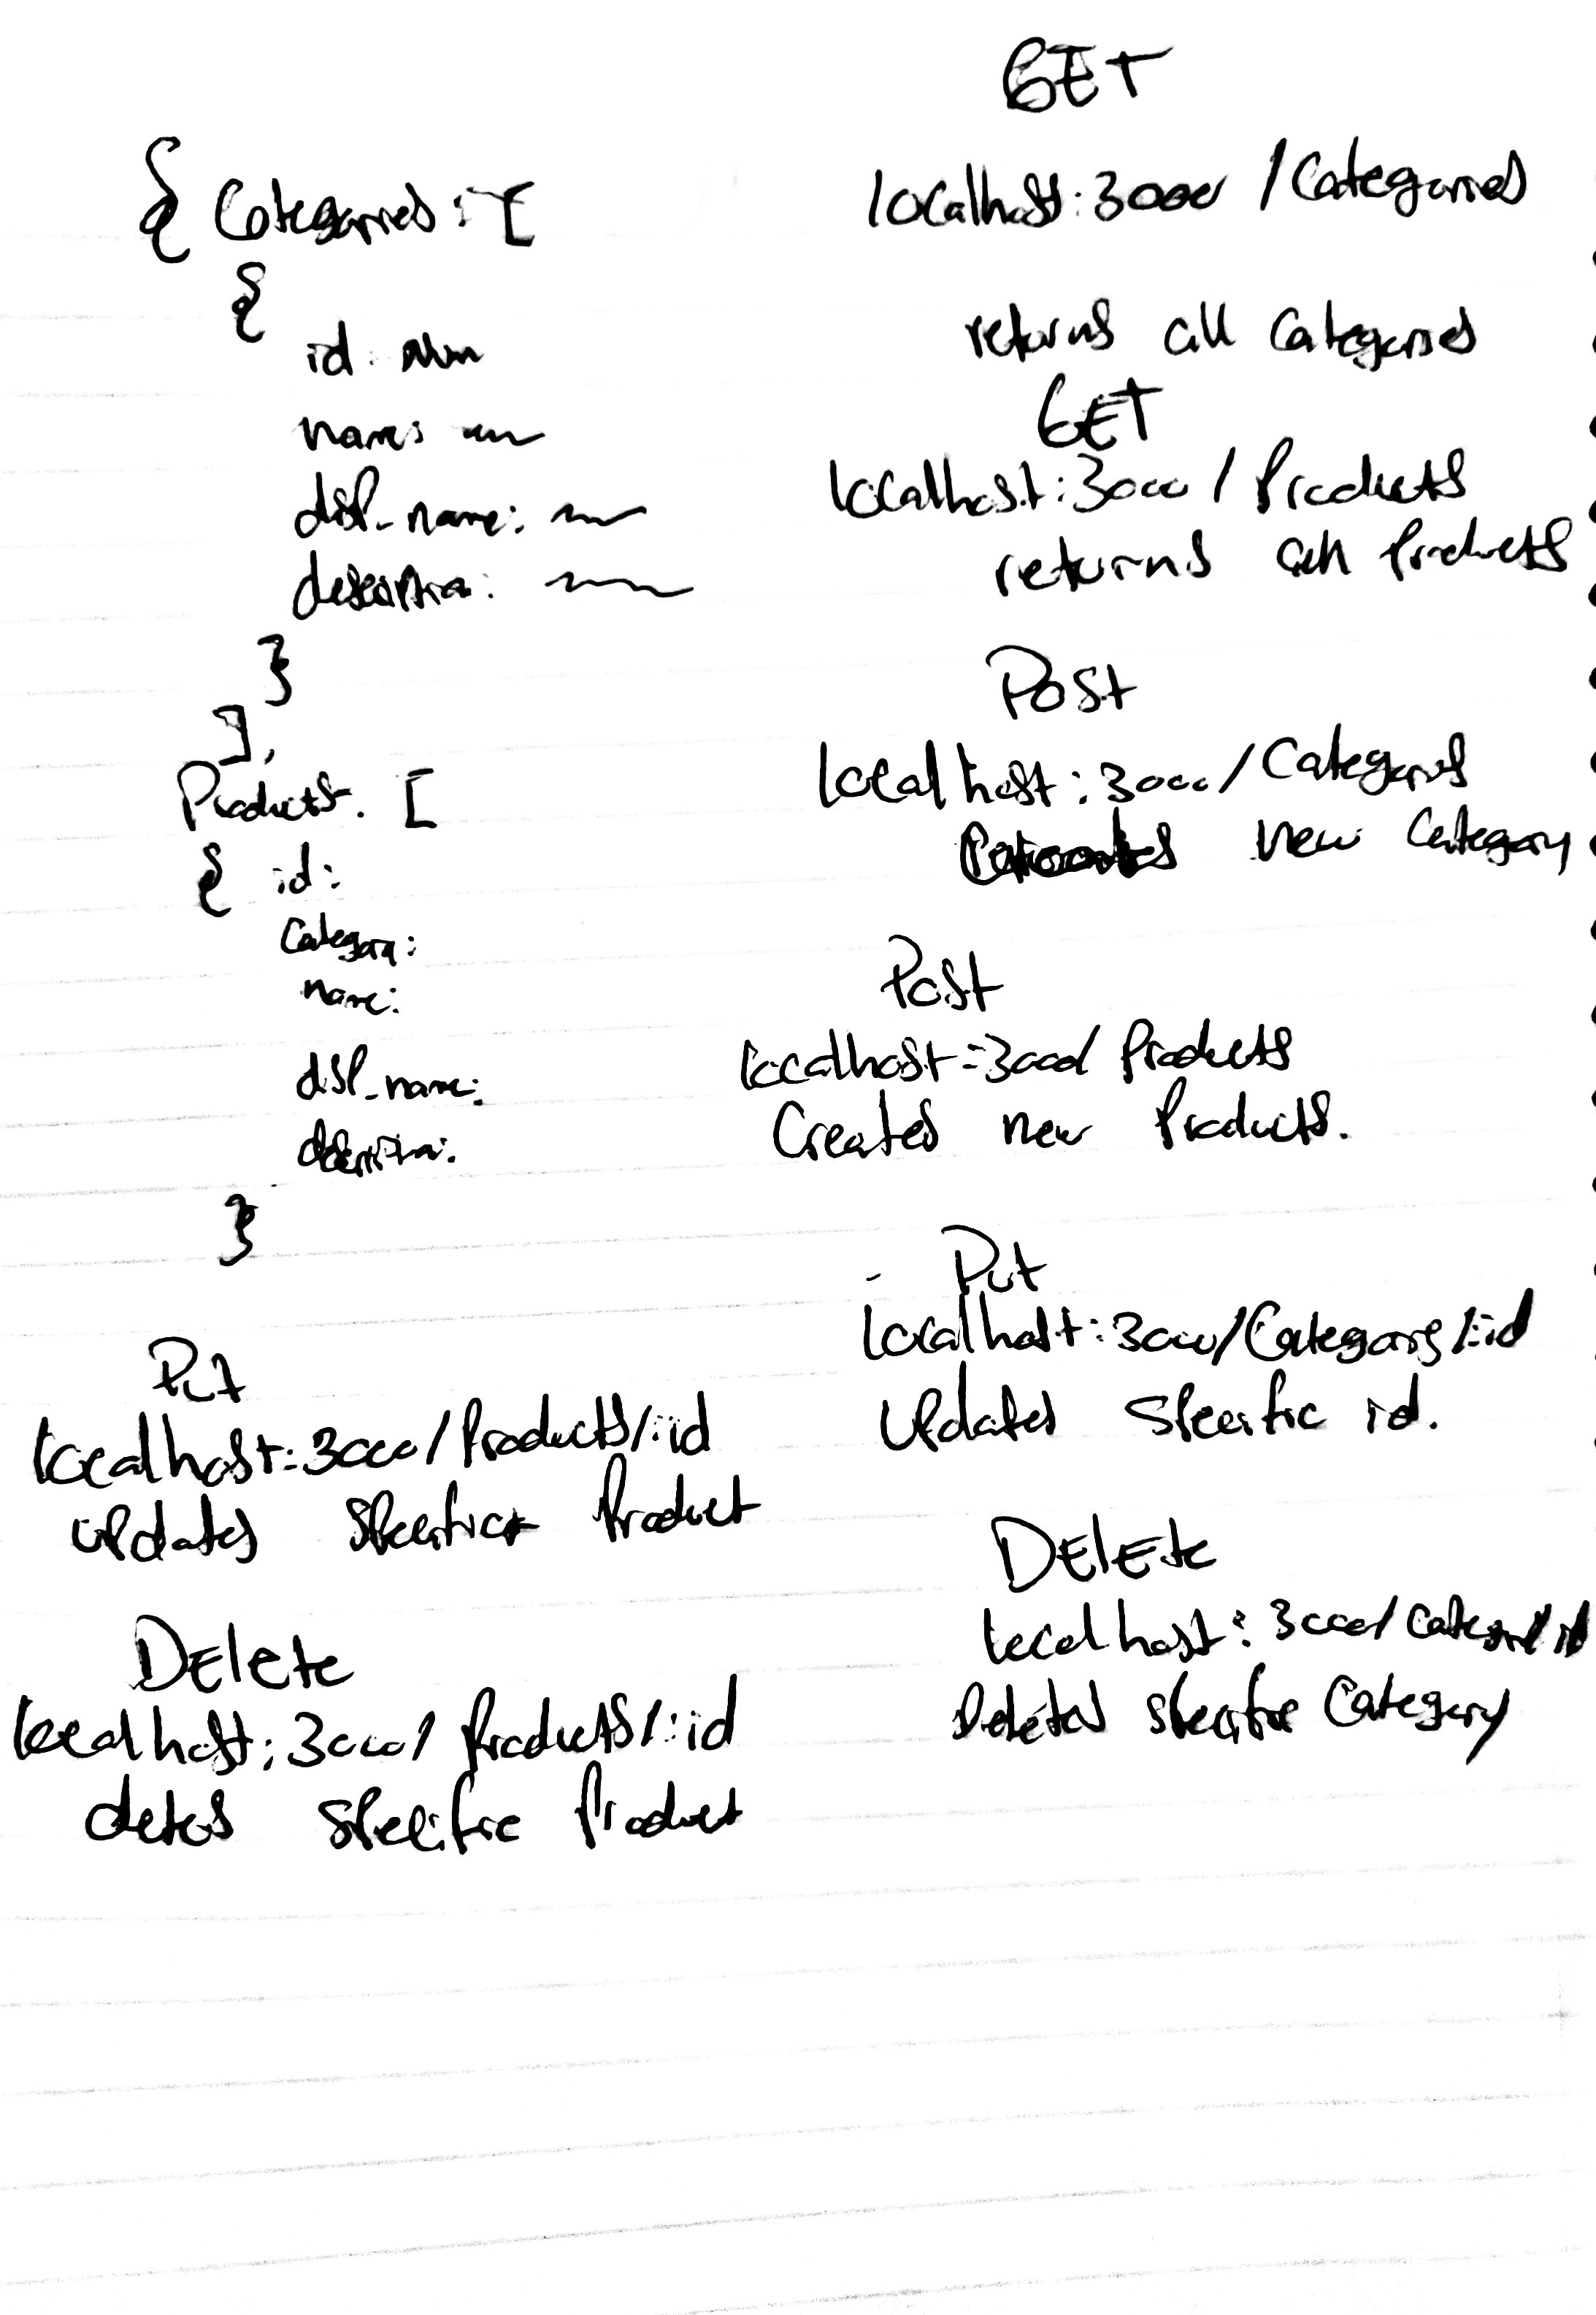 { Categories: [
{
id:
name:
disp_name:
description:
}
],
Products: [
{ id:
Category:
name:
disp_name:
description:
}
Put
localhost:3000/Products/:id
updates specific Product
DElete
localhost:3000/Products/:id
deletes specific Product
GET
localhost:3000/Categories
returns all Categories
GET
localhost:3000/Products
returns all Products
Post
localhost:3000/Categories
new Category
Post
localhost:3000/Products
Creates new Products.
Put
localhost:3000/Category/:id
Updates specific id.
DElEte
localhost:3000/Category/:id
Deletes specific Category